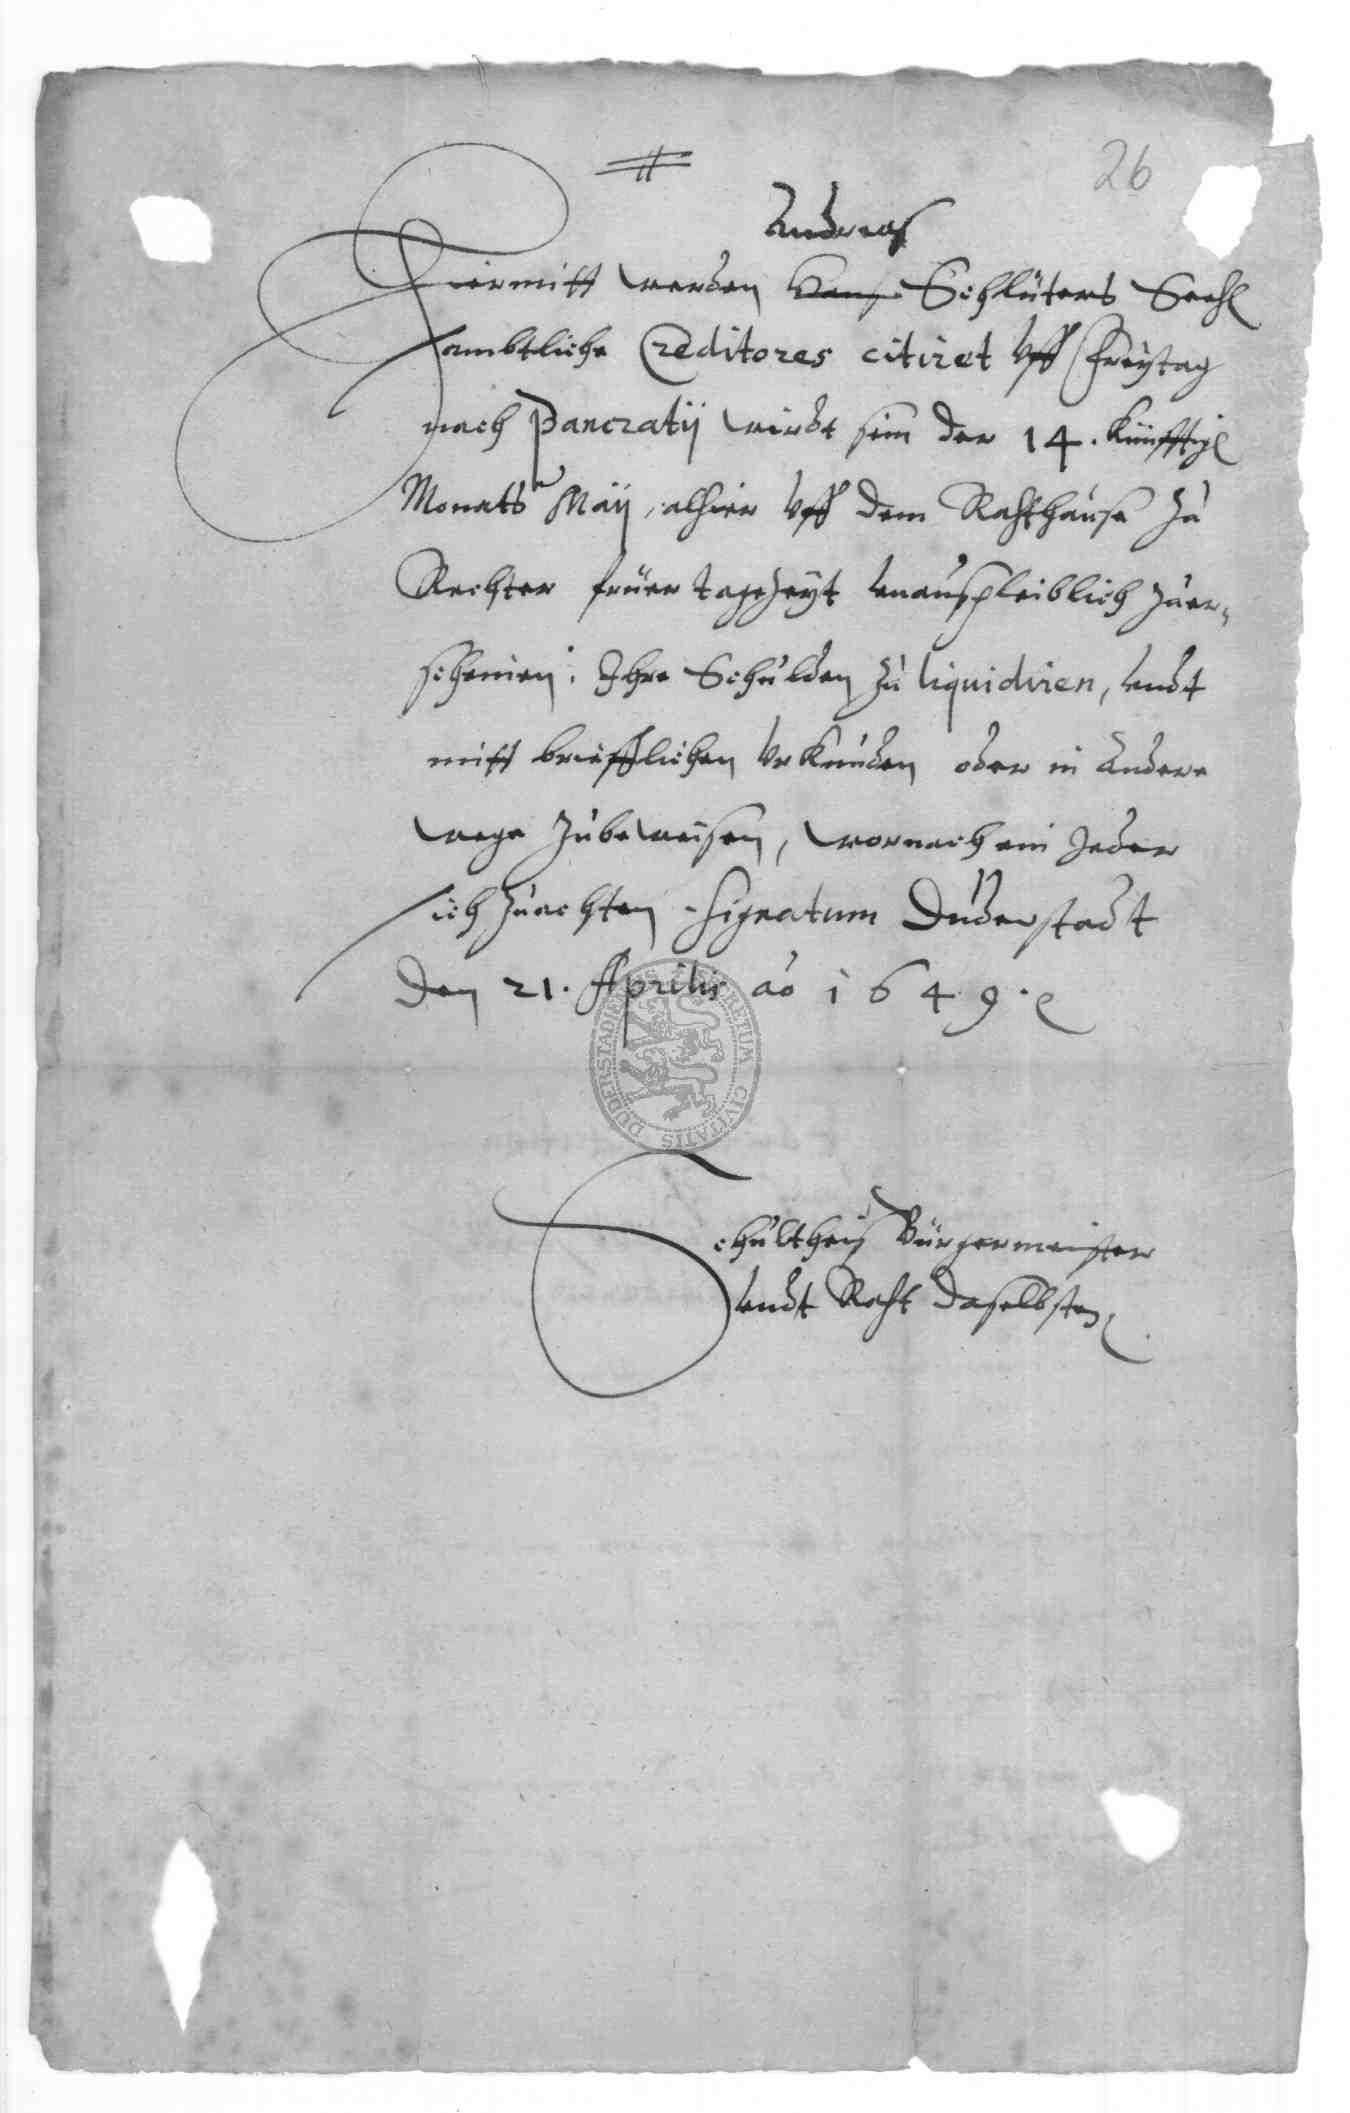 26
Andreas
Hiermitt werden Hans Schlüters Seehl
sambtliche Creditores citiret vff Freÿtag
nach Pancratij wirdt sein der 14. Künfftigl
Monatts Maÿ, alhier vff dem Rahthause zu
Rechter früer tagezeÿt vnausbleiblich zuer-
scheinen, Ihre Schulden zu liquidiren, vndt
mitt briefflichen Vrkunden oder in andere
wege zubeweisen, wornach ein Jeder
sich zuachten. Signatum Duderstadt
den 21. Aprilis ao 1649.
DUDERSTADIENSIS SECRETUM CIVITATIS
Schultheis Bürgermeister
vndt Raht daselbsten